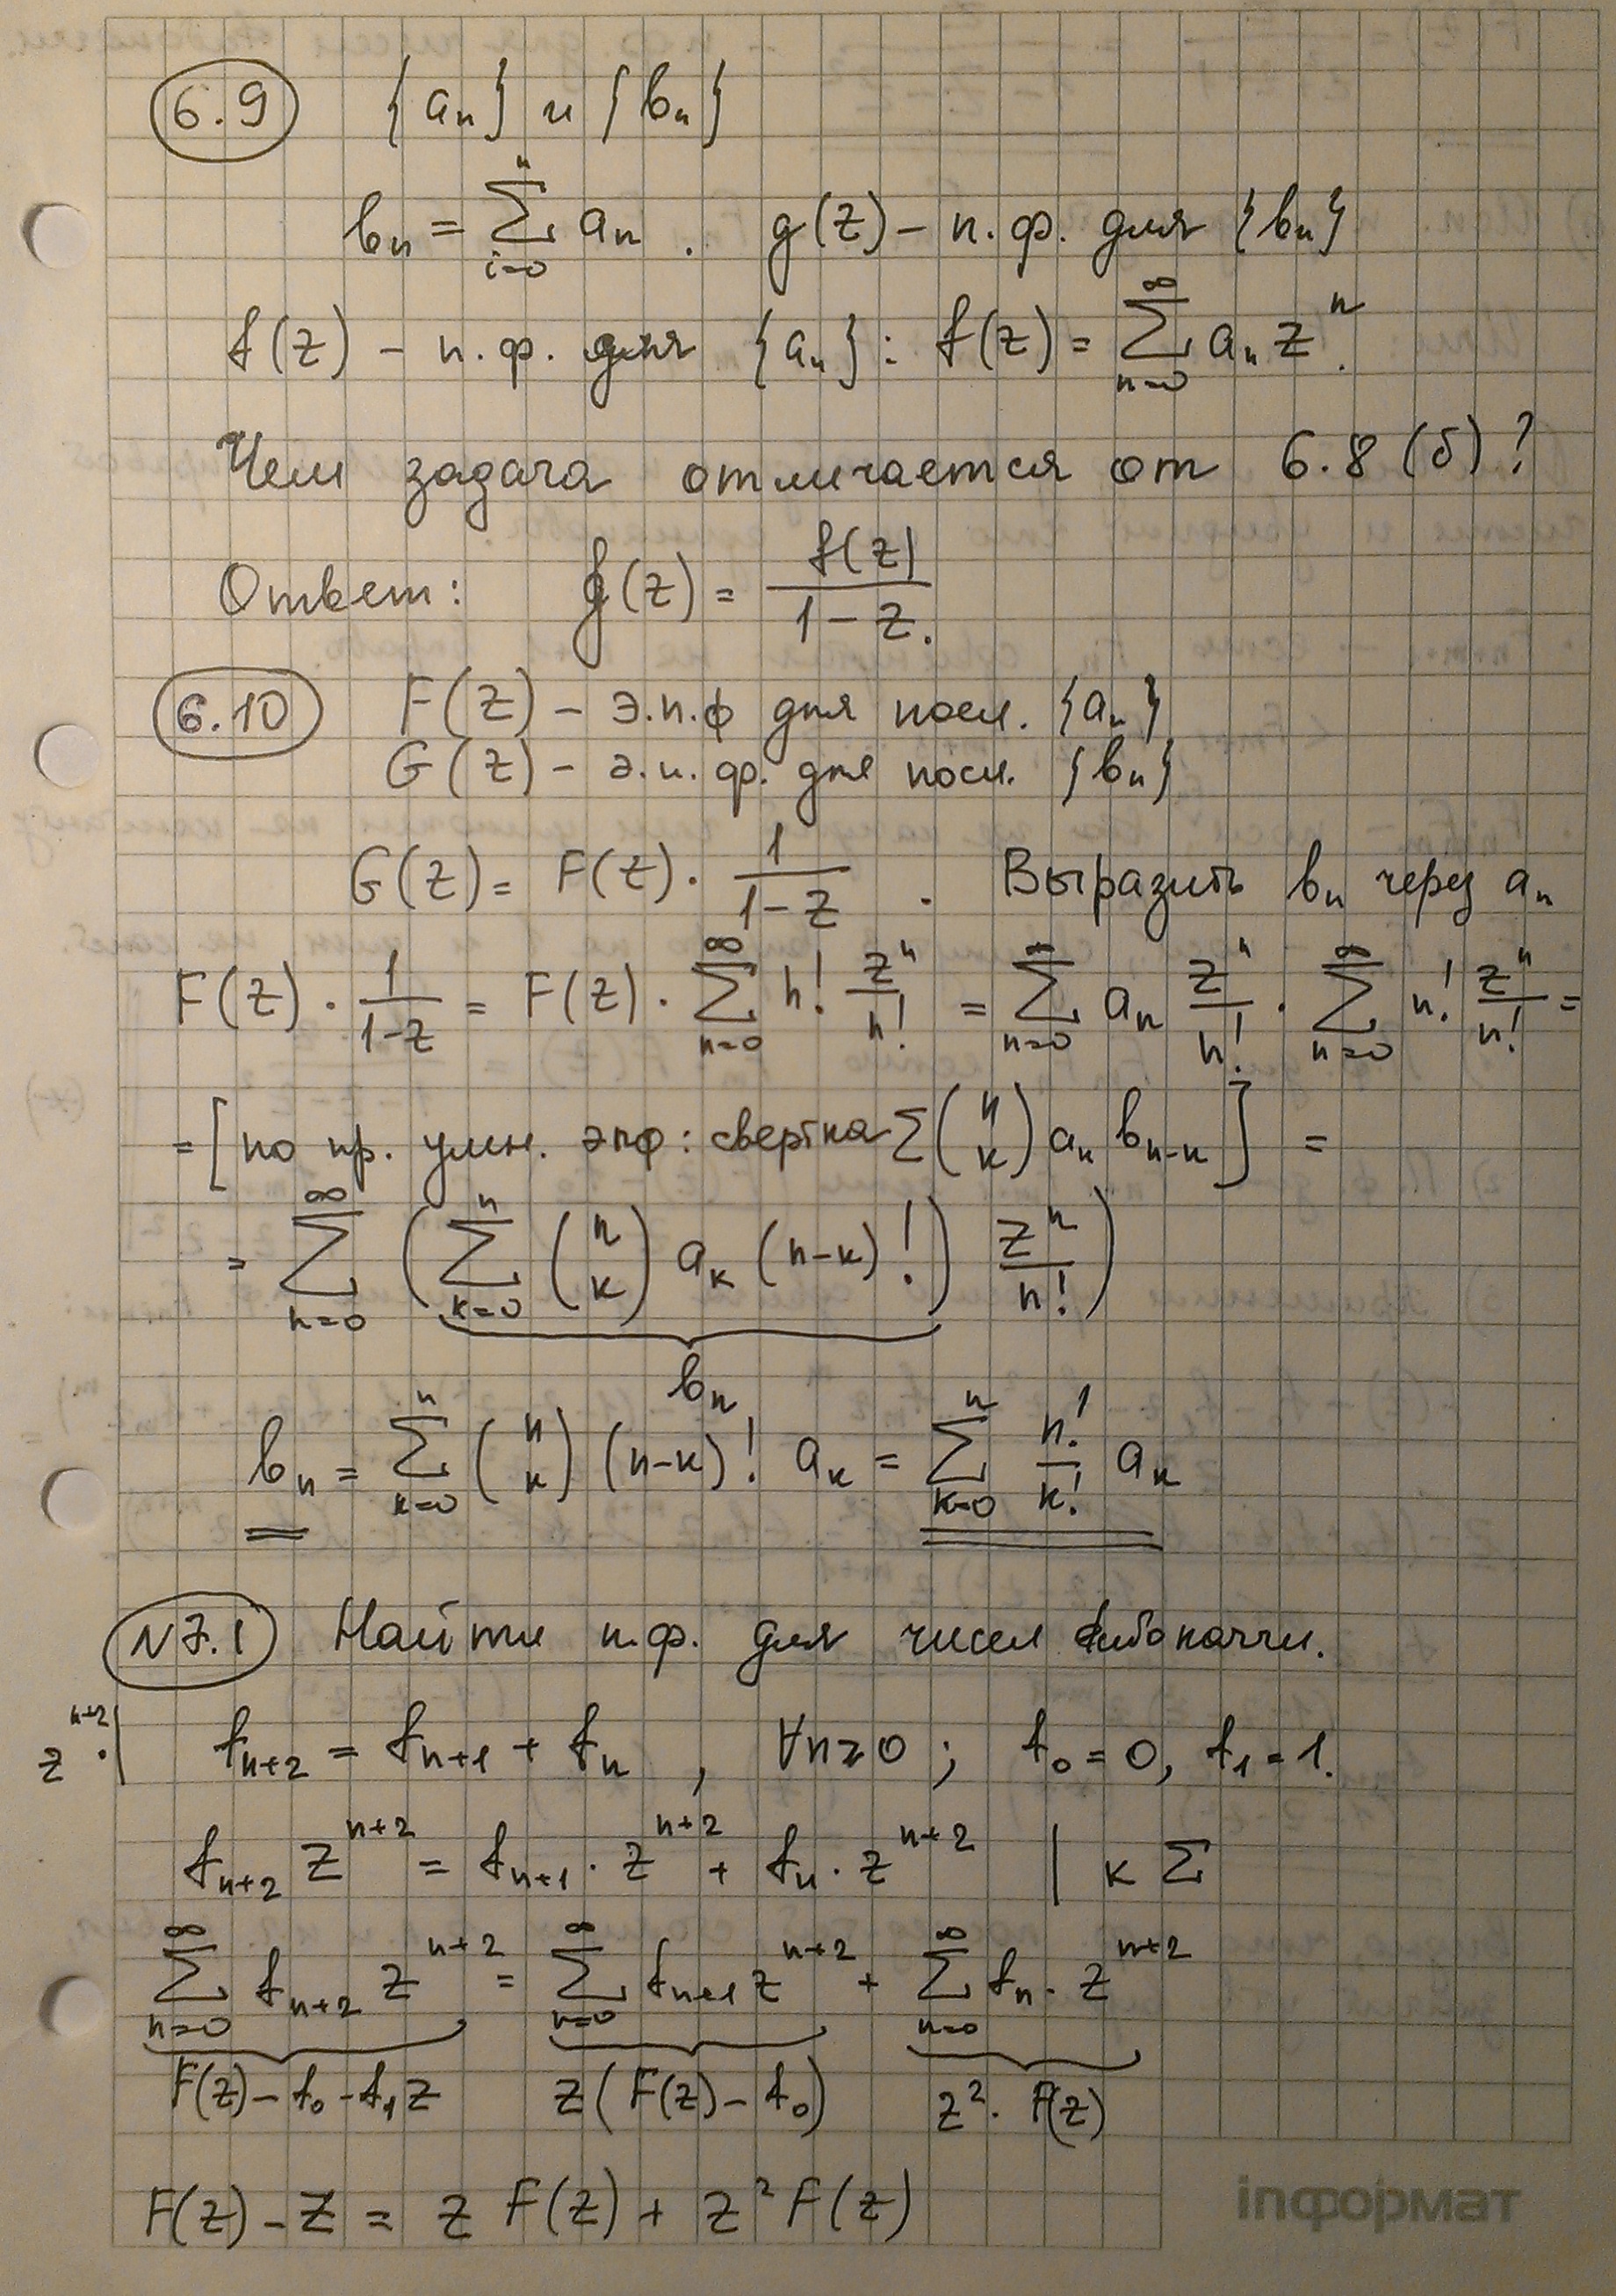 6.9 {aₙ} и {bₙ}
bₙ = ∑_{i=0}^{n} aₙ . g(z) – п.ф. для {bₙ}
f(z) – п.ф. для {aₙ}: f(z) = ∑_{n=0}^{∞} aₙ zⁿ.
Чем задача отличается от 6.8 (б)?
Ответ: g(z) = f(z)/(1-z).
6.10 F(z) – э.п.ф для посл. {aₙ}
G(z) – э.п.ф. для посл. {bₙ}
G(z) = F(z) · 1/(1-z) . Выразить bₙ через aₙ
F(z) · 1/(1-z) = F(z) · ∑_{n=0}^{∞} n! zⁿ/n! = ∑_{n=0}^{∞} aₙ zⁿ/n! · ∑_{n=0}^{∞} n! zⁿ/n! =
= [по пр. умн. эпф: свертка ∑(n k) aₖ b_{n-k}] =
= ∑_{n=0}^{∞} (∑_{k=0}^{n} (n k) aₖ (n-k)!) zⁿ/n!)
bₙ
bₙ = ∑_{k=0}^{n} (n k) (n-k)! aₖ = ∑_{k=0}^{n} n!/k! aₖ
N7.1 Найти п.ф. для чисел Фибоначчи.
z^{n+2} · | f_{n+2} = f_{n+1} + fₙ , ∀n≥0 ; f₀ = 0, f₁ = 1.
f_{n+2} z^{n+2} = f_{n+1} · z^{n+2} + fₙ · z^{n+2} | к ∑
∑_{n=0}^{∞} f_{n+2} z^{n+2} = ∑_{n=0}^{∞} f_{n+1} z^{n+2} + ∑_{n=0}^{∞} fₙ · z^{n+2}
F(z) - f₀ - f₁z z(F(z) - f₀) z² · F(z)
F(z) - z = z F(z) + z² F(z)
inформат